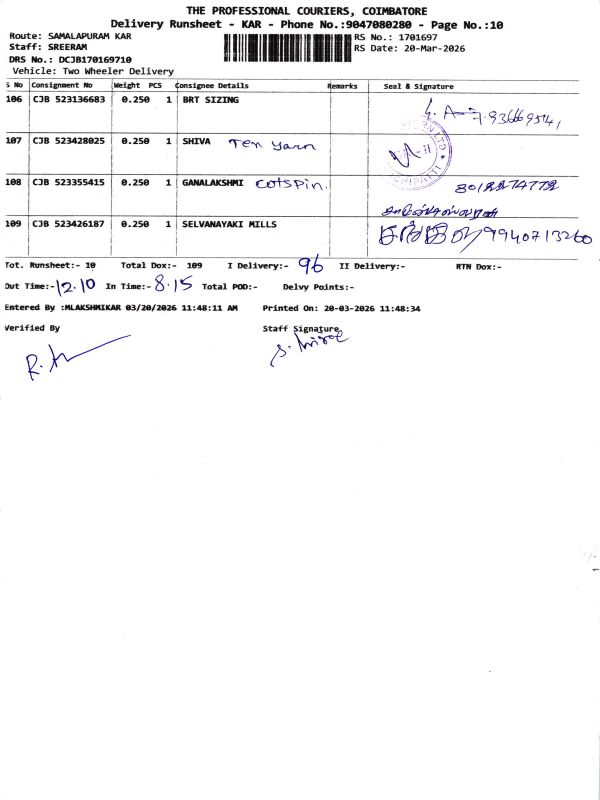 THE PROFESSIONAL COURIERS, COIMBATORE
Delivery Runsheet - KAR - Phone No.:9047080280 - Page No.:10
Route: SAMALAPURAM KAR
RS No.: 1701697
Staff: SREERAM
RS Date: 20-Mar-2026
DRS No.: DCJB170169710
Vehicle: Two Wheeler Delivery
S No Consignment No Weight PCS Consignee Details Remarks Seal & Signature
106 CJB 523136683 0.250 1 BRT SIZING
107 CJB 523428025 0.250 1 SHIVA Ten Yarn
108 CJB 523355415 0.250 1 GANALAKSHMI cotspin.
109 CJB 523426187 0.250 1 SELVANAYAKI MILLS 9940713260
Tot. Runsheet:- 10 Total Dox:- 109 I Delivery:- 96 II Delivery:- RTN Dox:-
Out Time:- 12.10 In Time:- 8.15 Total POD:- Delvy Points:-
Entered By :MLAKSHMIKAR 03/20/2026 11:48:11 AM Printed On: 20-03-2026 11:48:34
Verified By Staff Signature